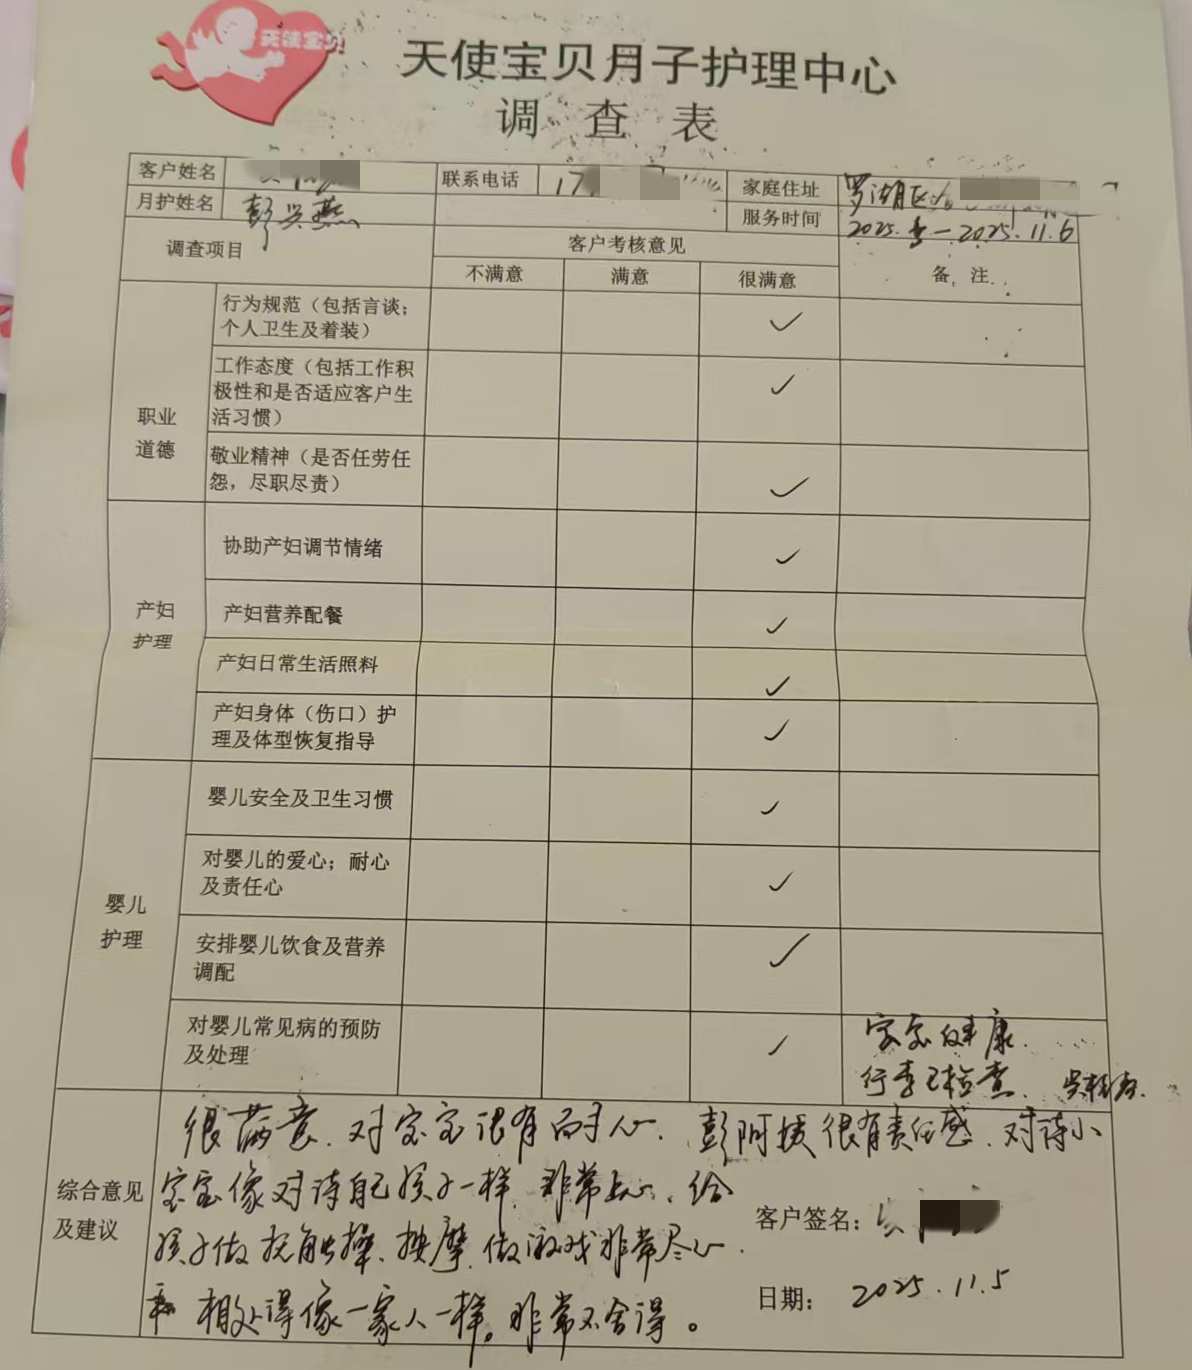 天使宝贝
天使宝贝月子护理中心
调查表
客户姓名 联系电话 17 家庭住址 罗湖区
月护姓名 彭兴燕 服务时间 2025. 一2025.11.6
调查项目 客户考核意见 备 注
不满意 满意 很满意
职业
道德
行为规范（包括言谈；
个人卫生及着装） ✓
工作态度（包括工作积
极性和是否适应客户生
活习惯） ✓
敬业精神（是否任劳任
怨，尽职尽责） ✓
产妇
护理
协助产妇调节情绪 ✓
产妇营养配餐 ✓
产妇日常生活照料 ✓
产妇身体（伤口）护
理及体型恢复指导 ✓
婴儿
护理
婴儿安全及卫生习惯 ✓
对婴儿的爱心；耐心
及责任心 ✓
安排婴儿饮食及营养
调配 ✓
对婴儿常见病的预防
及处理 ✓
健康.
行李已检查.
综合意见
及建议
很满意. 对宝宝很有耐心. 彭阿姨很有责任感. 对待小
宝宝像对待自己孩子一样. 非常上心. 给
孩子做抚触操. 按摩. 做游戏非常尽心.
相处得像一家人一样。非常不舍得。
客户签名：
日期： 2025.11.5